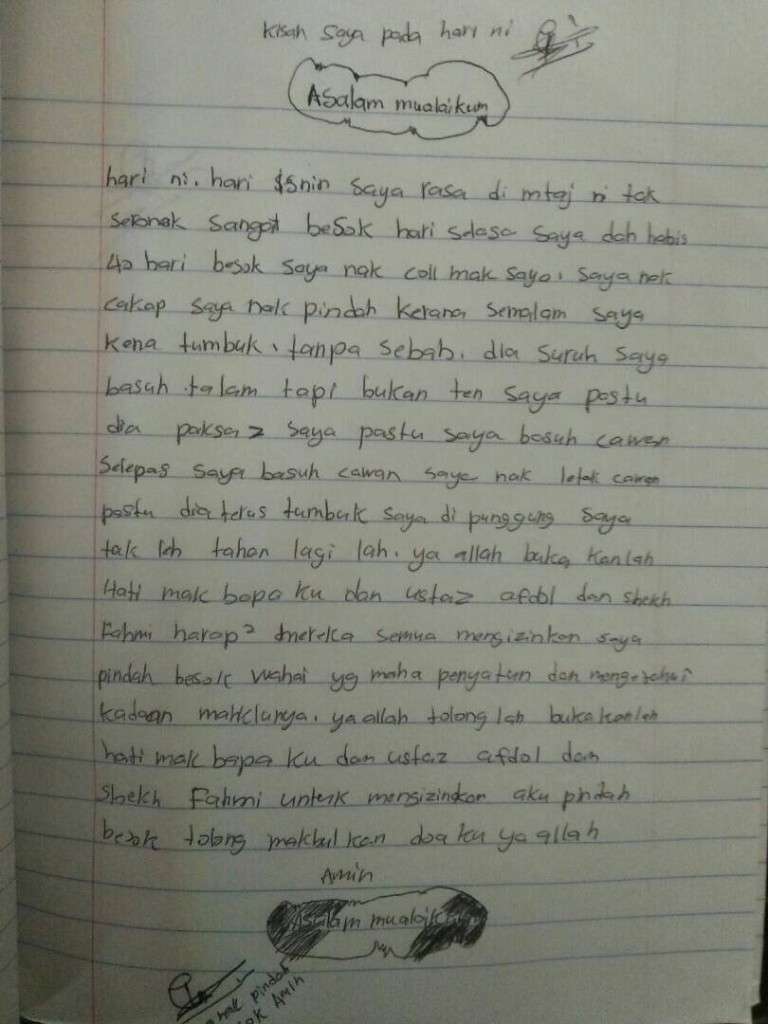 kisah saya pada hari ni
Asalam mualaikum
hari ni. hari isnin saya rasa di mtaj ni tak
seronok sangat besok hari selasa saya dah habis
40 hari besok saya nak call mak saya. saya nak
cakap saya nak pindah kerana semalam saya
kena tumbuk. tanpa sebab. dia suruh saya
basuh talam tapi bukan ten saya pastu
dia paksa2 saya pastu saya basuh cawan
selepas saya basuh cawan saye nak letak cawan
pastu dia terus tumbuk saya di punggung saya
tak leh tahan lagi lah. ya allah buka kanlah
Hati mak bapa ku dan ustaz afdol dan shekh
Fahmi harap² mereka semua mengizinkan saya
pindah besok wahai yg maha penyatun dan mengetahui
kadaan mahklunya. ya allah tolong lah buka kanlah
hati mak bapa ku dan ustaz afdol dan
shekh Fahmi untuk mengizinkan aku pindah
besok tolong makbul kan doa ku ya allah
Amin
Asalam mualaikum
nak pindah
Amin